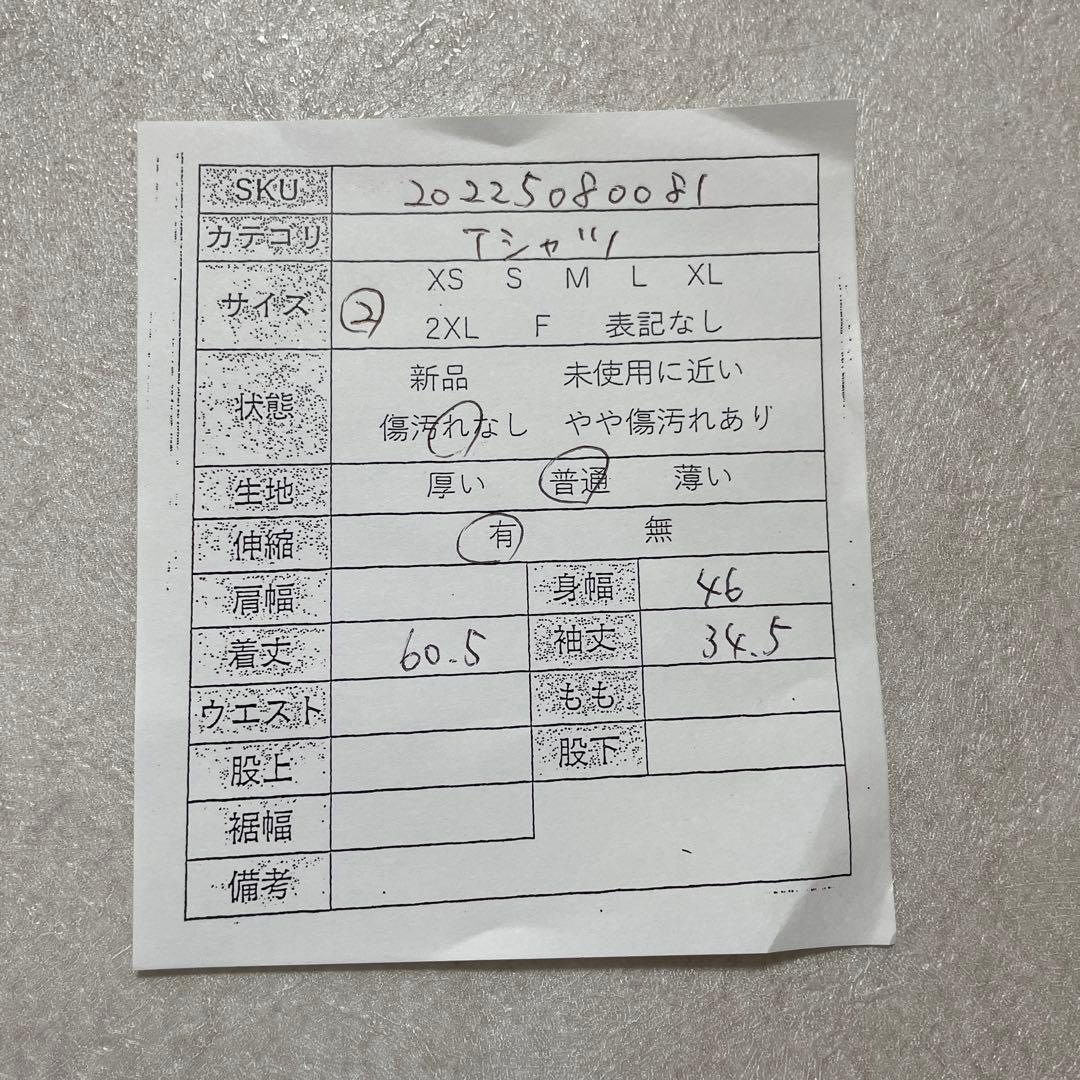 SKU 20225080081
カテゴリ Tシャツ
サイズ XS S M L XL
② 2XL F 表記なし
状態 新品 未使用に近い
傷汚れなし やや傷汚れあり
生地 厚い 普通 薄い
伸縮 有 無
肩幅 身幅 46
着丈 60.5 袖丈 34.5
ウエスト もも
股上 股下
裾幅
備考